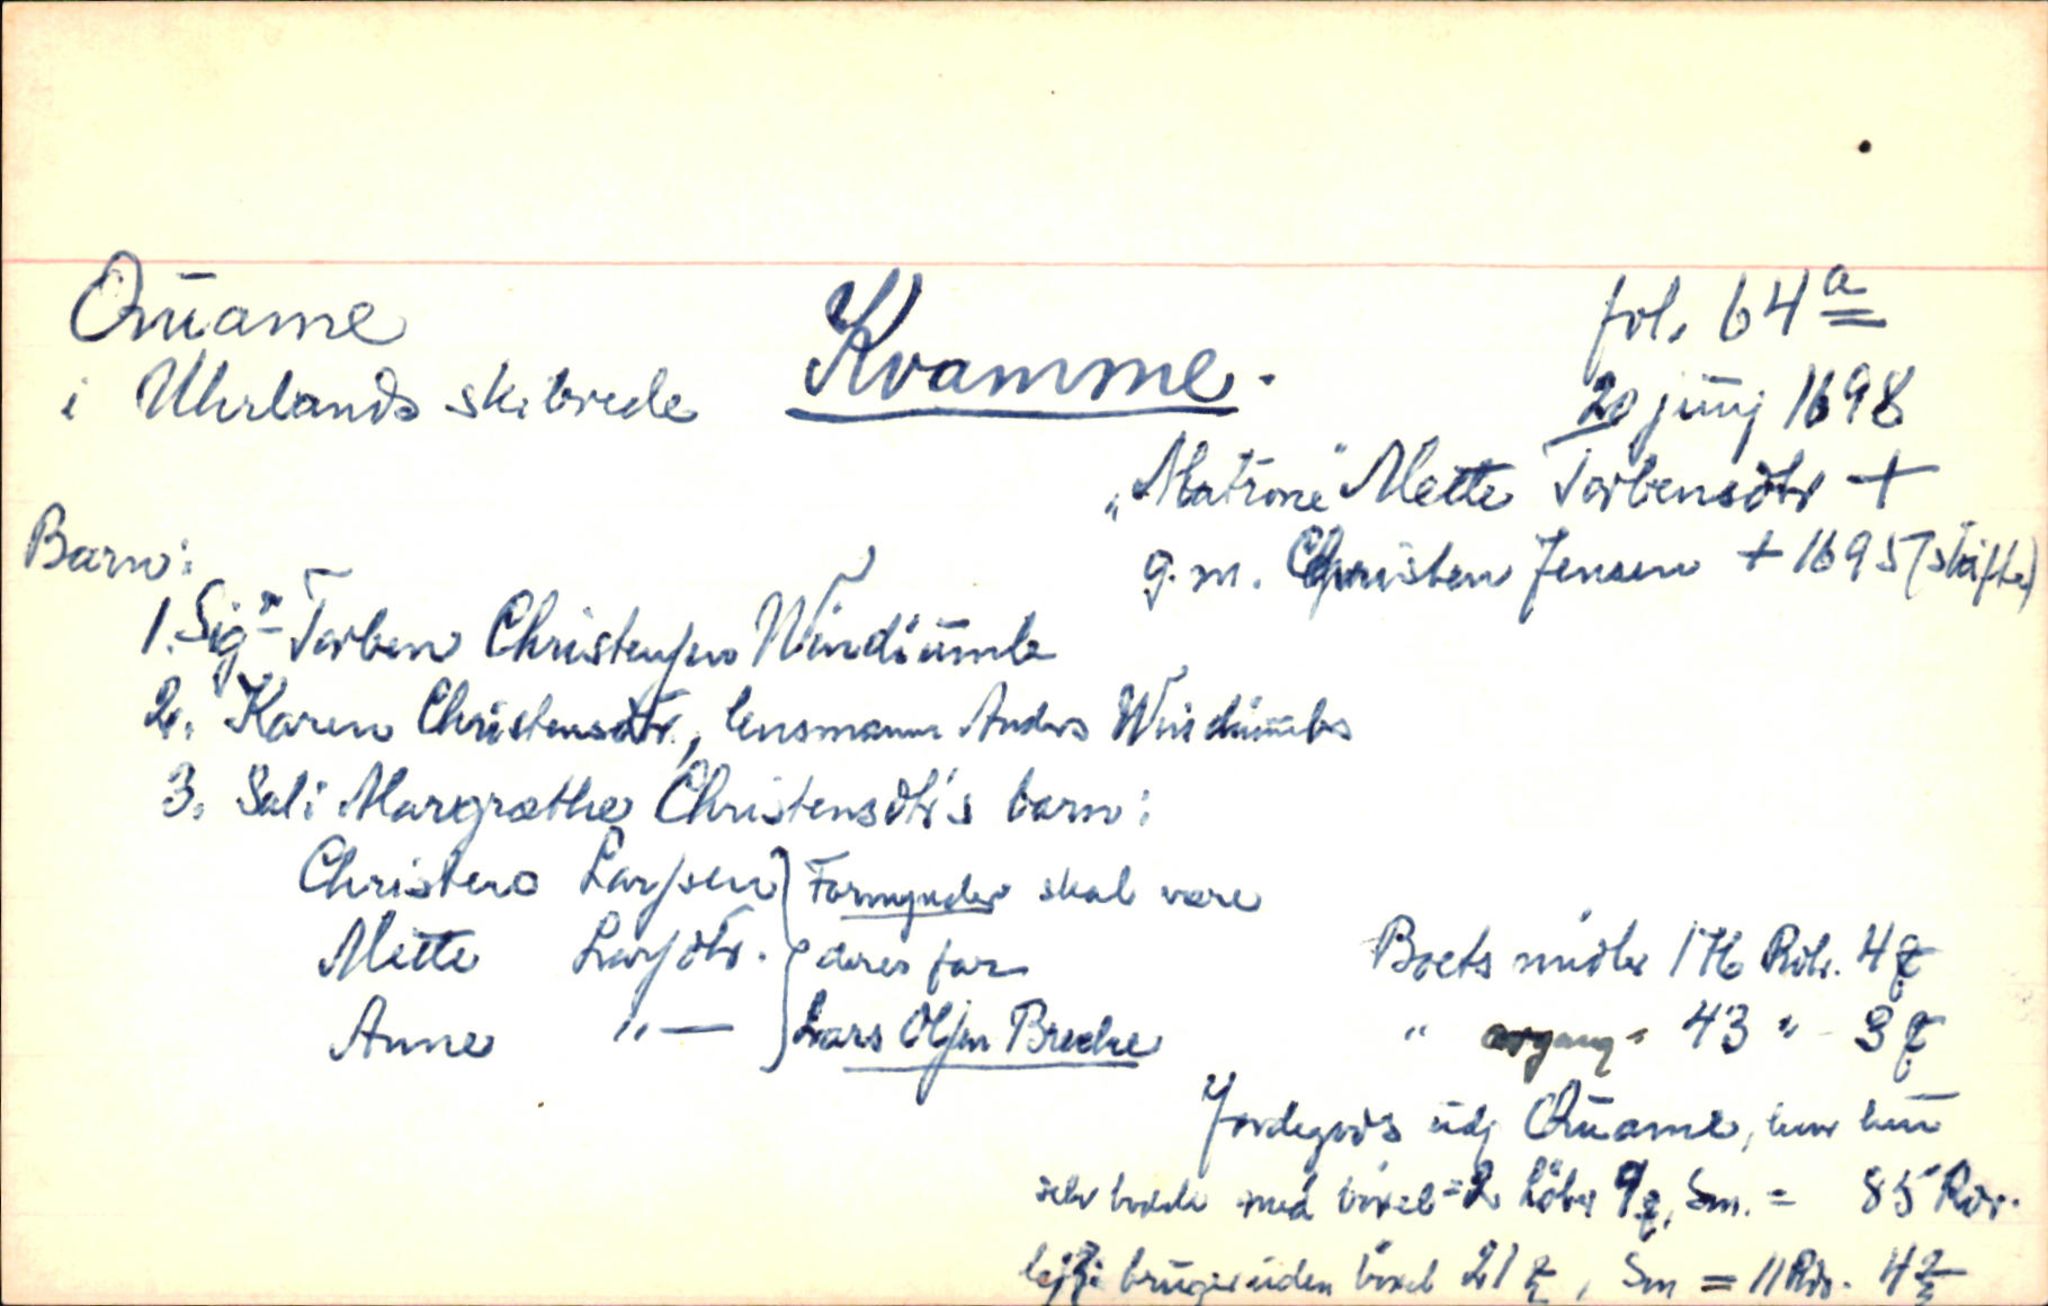 Qvame
i Uhrlands skibrede
Kvamme.
fol. 64a
20 junij 1698
"Matrone" Mette Torbensdtr +
g.m. Christen Jensen + 1695 (skifte)
Barn:
1. Sigr Torben Christensen Windiumle
2. Karen Christensdtr., lensmann Anders
3. Sal: Margrethe Christensdtr's barn:
Christen Larssen } Formynder skal være
Mette Larsdtr. } deres far
Anne "— } Lars Olsen Breche
Boets midler 176 Rdr. 4 ₻
" avgang " 43 " 3 ₻
Jordegods udj Qvame, hun
selv bodde med böxel = 2 Löber 9 ₻, Sm. = 85 Rdr.
bruger uden böxel 21 ₻, Sm = 11 Rdr. 4 ₻